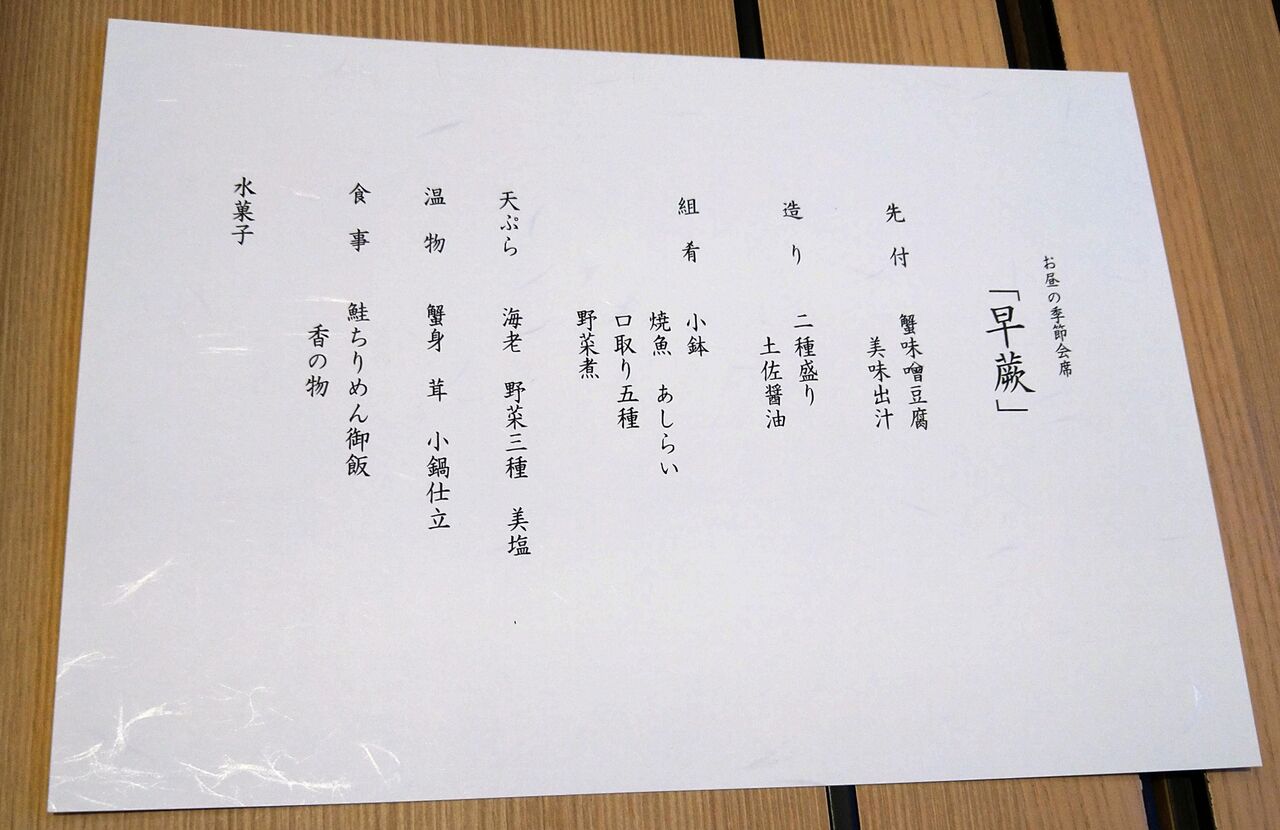 お昼の季節会席
「早蕨」
先付 蟹味噌豆腐
美味出汁
造り 二種盛り
土佐醤油
組肴 小鉢
焼魚 あしらい
口取り五種
野菜煮
天ぷら 海老 野菜三種 美塩
温物 蟹身 茸 小鍋仕立
食事 鮭ちりめん御飯
香の物
水菓子